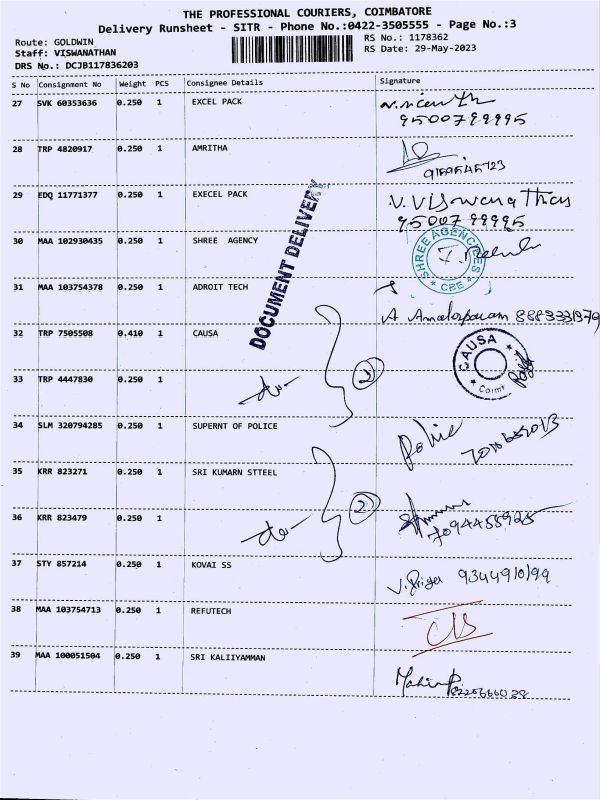 THE PROFESSIONAL COURIERS, COIMBATORE
Delivery Runsheet - SITR - Phone No.:0422-3505555 - Page No.:3
Route: GOLDWIN RS No.: 1178362
Staff: VISWANATHAN RS Date: 29-May-2023
DRS No.: DCJB117836203
S No Consignment No Weight PCS Consignee Details Signature
27 SVK 60353636 0.250 1 EXCEL PACK
9500799995
28 TRP 4820917 0.250 1 AMRITHA
9159545723
29 EDQ 11771377 0.250 1 EXECEL PACK V. Viswanathan
9500799995
DOCUMENT DELIVERY
30 MAA 102930435 0.250 1 SHREE AGENCY
SHREE AGENCIES
CBE
31 MAA 103754378 0.250 1 ADROIT TECH
A 8883331379
32 TRP 7505508 0.410 1 CAUSA
CAUSA
33 TRP 4447830 0.250 1 -do- 2
34 SLM 320794285 0.250 1 SUPERNT OF POLICE Police
35 KRR 823271 0.250 1 SRI KUMARN STTEEL
36 KRR 823479 0.250 1 -do- 2
7094455925
37 STY 857214 0.250 1 KOVAI SS V. Priya 9344910199
38 MAA 103754713 0.250 1 REFUTECH
39 MAA 100051504 0.250 1 SRI KALIIYAMMAN